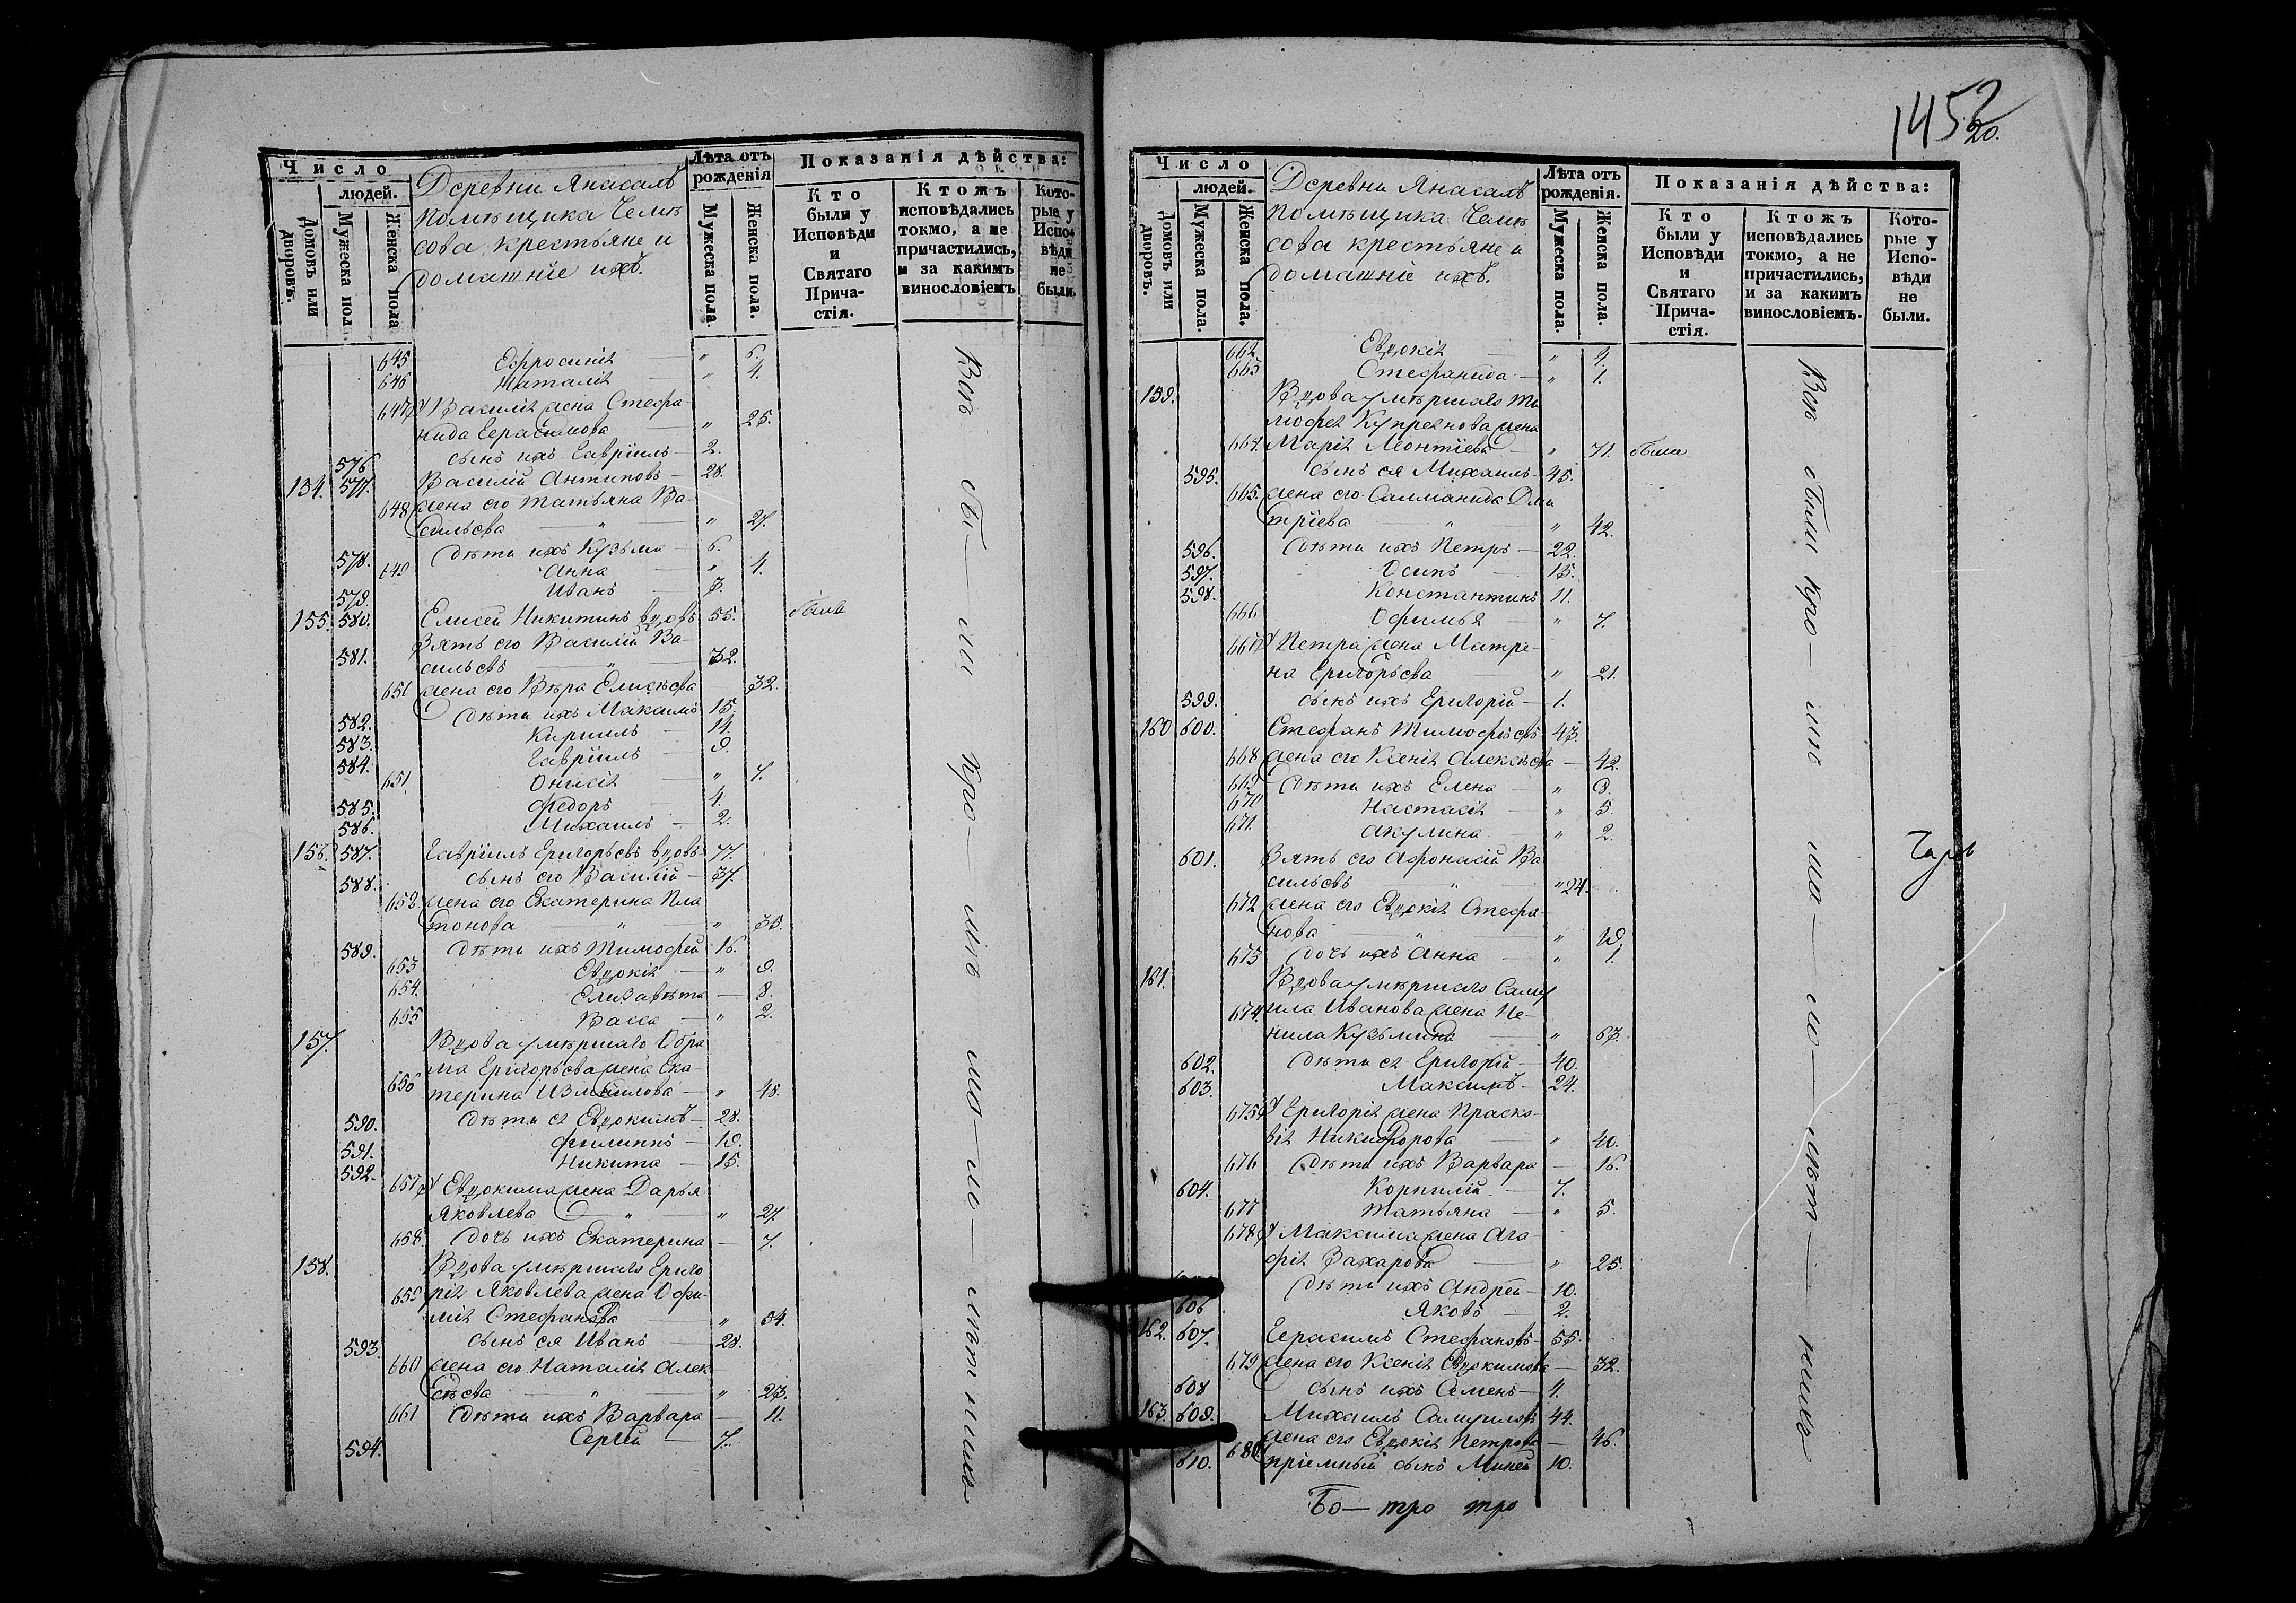 1452
20.
Число
людей.
Домовъ или дворовъ.
Мужеска пол.
Женска пола
Деревни Янасалъ
помѣщика Челѣ
сова, крестьяне и
домашнїе ихъ.
Лѣта отъ рожденія
Мужеска пола.
Женска пола.
Показанія дѣйства:
Кто были у Исповѣди и Святаго Прича-стія.
Ктожъ исповѣдались токмо, а не причастились, и за какимъ винословіемъ
Кото-рые у Испо-вѣди не были.
645 Ефросинія — " 6.
646 Наталія — " 4.
647 У Василія жена Стефа-
нида Герасимова — " 25.
576 сынъ ихъ Гавріилъ — 2.
134. 577. Василій Антиповъ — 28.
648 жена его Татьяна Ва-
сильева — " — " 27.
578. Дѣти ихъ Кузьма — 6.
649 Анна — " 4.
579. Иванъ — 3.
155. 580. Елисей Никитинъ вдовъ 55. былъ
581. Зять его Василій Ва-
сильевъ — " — 32.
651 жена его Вѣра Елисѣева 32.
582. Дѣти ихъ Максимъ 15.
583. Кириллъ — 14.
584. Гавріилъ — 9.
651. Онисія — " 7.
585. Федоръ — 4.
586. Михаилъ — 2.
156. 587. Гавріилъ Григорьевъ вдовъ 77.
588. сынъ его Василій — 37.
652 жена его Екатерина Пла
тонова — " — " 36.
589. Дѣти ихъ Тимофей 16.
653 Евдокія — " 9.
654. Елизавѣта — 8.
655 Васса — " 2.
157. Вдова умѣршаго Абра
ма Григорьева жена Ека-
656 терина Измайлова — " 48.
590. Дѣти ея Евдокимъ — 28.
591. Филиппъ — 19.
592. Никита — 15.
657 У Евдокима жена Дарья
Яковлева — " — " 27.
658. Дочь ихъ Екатерина — 7.
158. Вдова умѣршаго Григо
659 рія Яковлева жена Офи-
мія Стефанова — " 54.
593. сынъ ея Иванъ — 28.
660 жена его Наталія Алек
сѣева — " — " 23.
661 Дѣти ихъ Варвара — 11.
594. Сергѣй — 7.
Всѣ бы — ли про —
Число
людей.
Домовъ или дворовъ.
Мужеска пола.
Женска пола.
Деревни Янасалъ
помѣщика Челѣ
сова крестьяне и
домашнїе ихъ.
Лѣта отъ рожденія.
Мужеска пола.
Женска пола.
Показанія дѣйства:
Кто были у Исповѣди и Святаго Прича-стія.
Ктожъ исповѣдались токмо, а не причастились, и за какимъ винословіемъ.
Кото-рые у Испо-вѣди не были.
662 Евдокія — " 4.
663 Стефанида — " 1.
159. Вдова умѣршаго Ти
мофея Купреянова жена
664. Марія Леонтїева — " 71. была
595. сынъ ея Михаилъ — 45.
665. жена его Саламанида Дми
трїева — " — " 42.
596. Дѣти ихъ Петръ — 22.
597. Осипъ — 15.
598. Константинъ 11.
666 Офимья — " 7.
667 У Петра жена Матре-
на Григорьева — " 21.
599. сынъ ихъ Григорій — 1.
160 600. Стефанъ Тимофѣевъ 43.
668 жена его Ксенія Алексѣева — 42.
669 Дѣти ихъ Елена — " 9.
670 Настасія — " 5.
671. Акулина — " 2.
601. Зять его Афонасій Ва
сильевъ — " — " 24.
672 жена его Евдокія Стефа-
нова — " — " 19.
673 Дочь ихъ Анна — " 1.
161. Вдова умѣршаго Саму
674. ила Иванова жена Не-
нила Кузьмина — " 63.
602. Дѣти ея Григорій — 40.
603. Максимъ — 24.
675 У Григорія жена Праско-
вія Никифорова — " 40.
676 Дѣти ихъ Варвара — 16.
604. Корнилій — 7.
677 Татьяна — " 5.
678 У Максима жена Ага-
фія Захарова — " 25.
Дѣти ихъ Андрей — 10.
606 Яковъ — 2.
162. 607. Герасимъ Стефановъ — 55.
679 жена его Ксенія Евдокимова — 32.
608 сынъ ихъ Семенъ — 4.
163 609. Михаилъ Самуиловъ 44.
680 жена его Евдокія Петрова — 46.
610. прїемный сынъ Миней 10.
Всѣ были про —